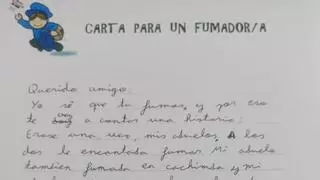 CARTA PARA UN FUMADOR/A
Querido amigo:
Yo sé que tu fumas, y por eso
te voy a contar una historia:
Erase una vez, mis abuelos, A los
dos le encantaba fumar. Mi abuela
tambien fumaba en cachimba y mi